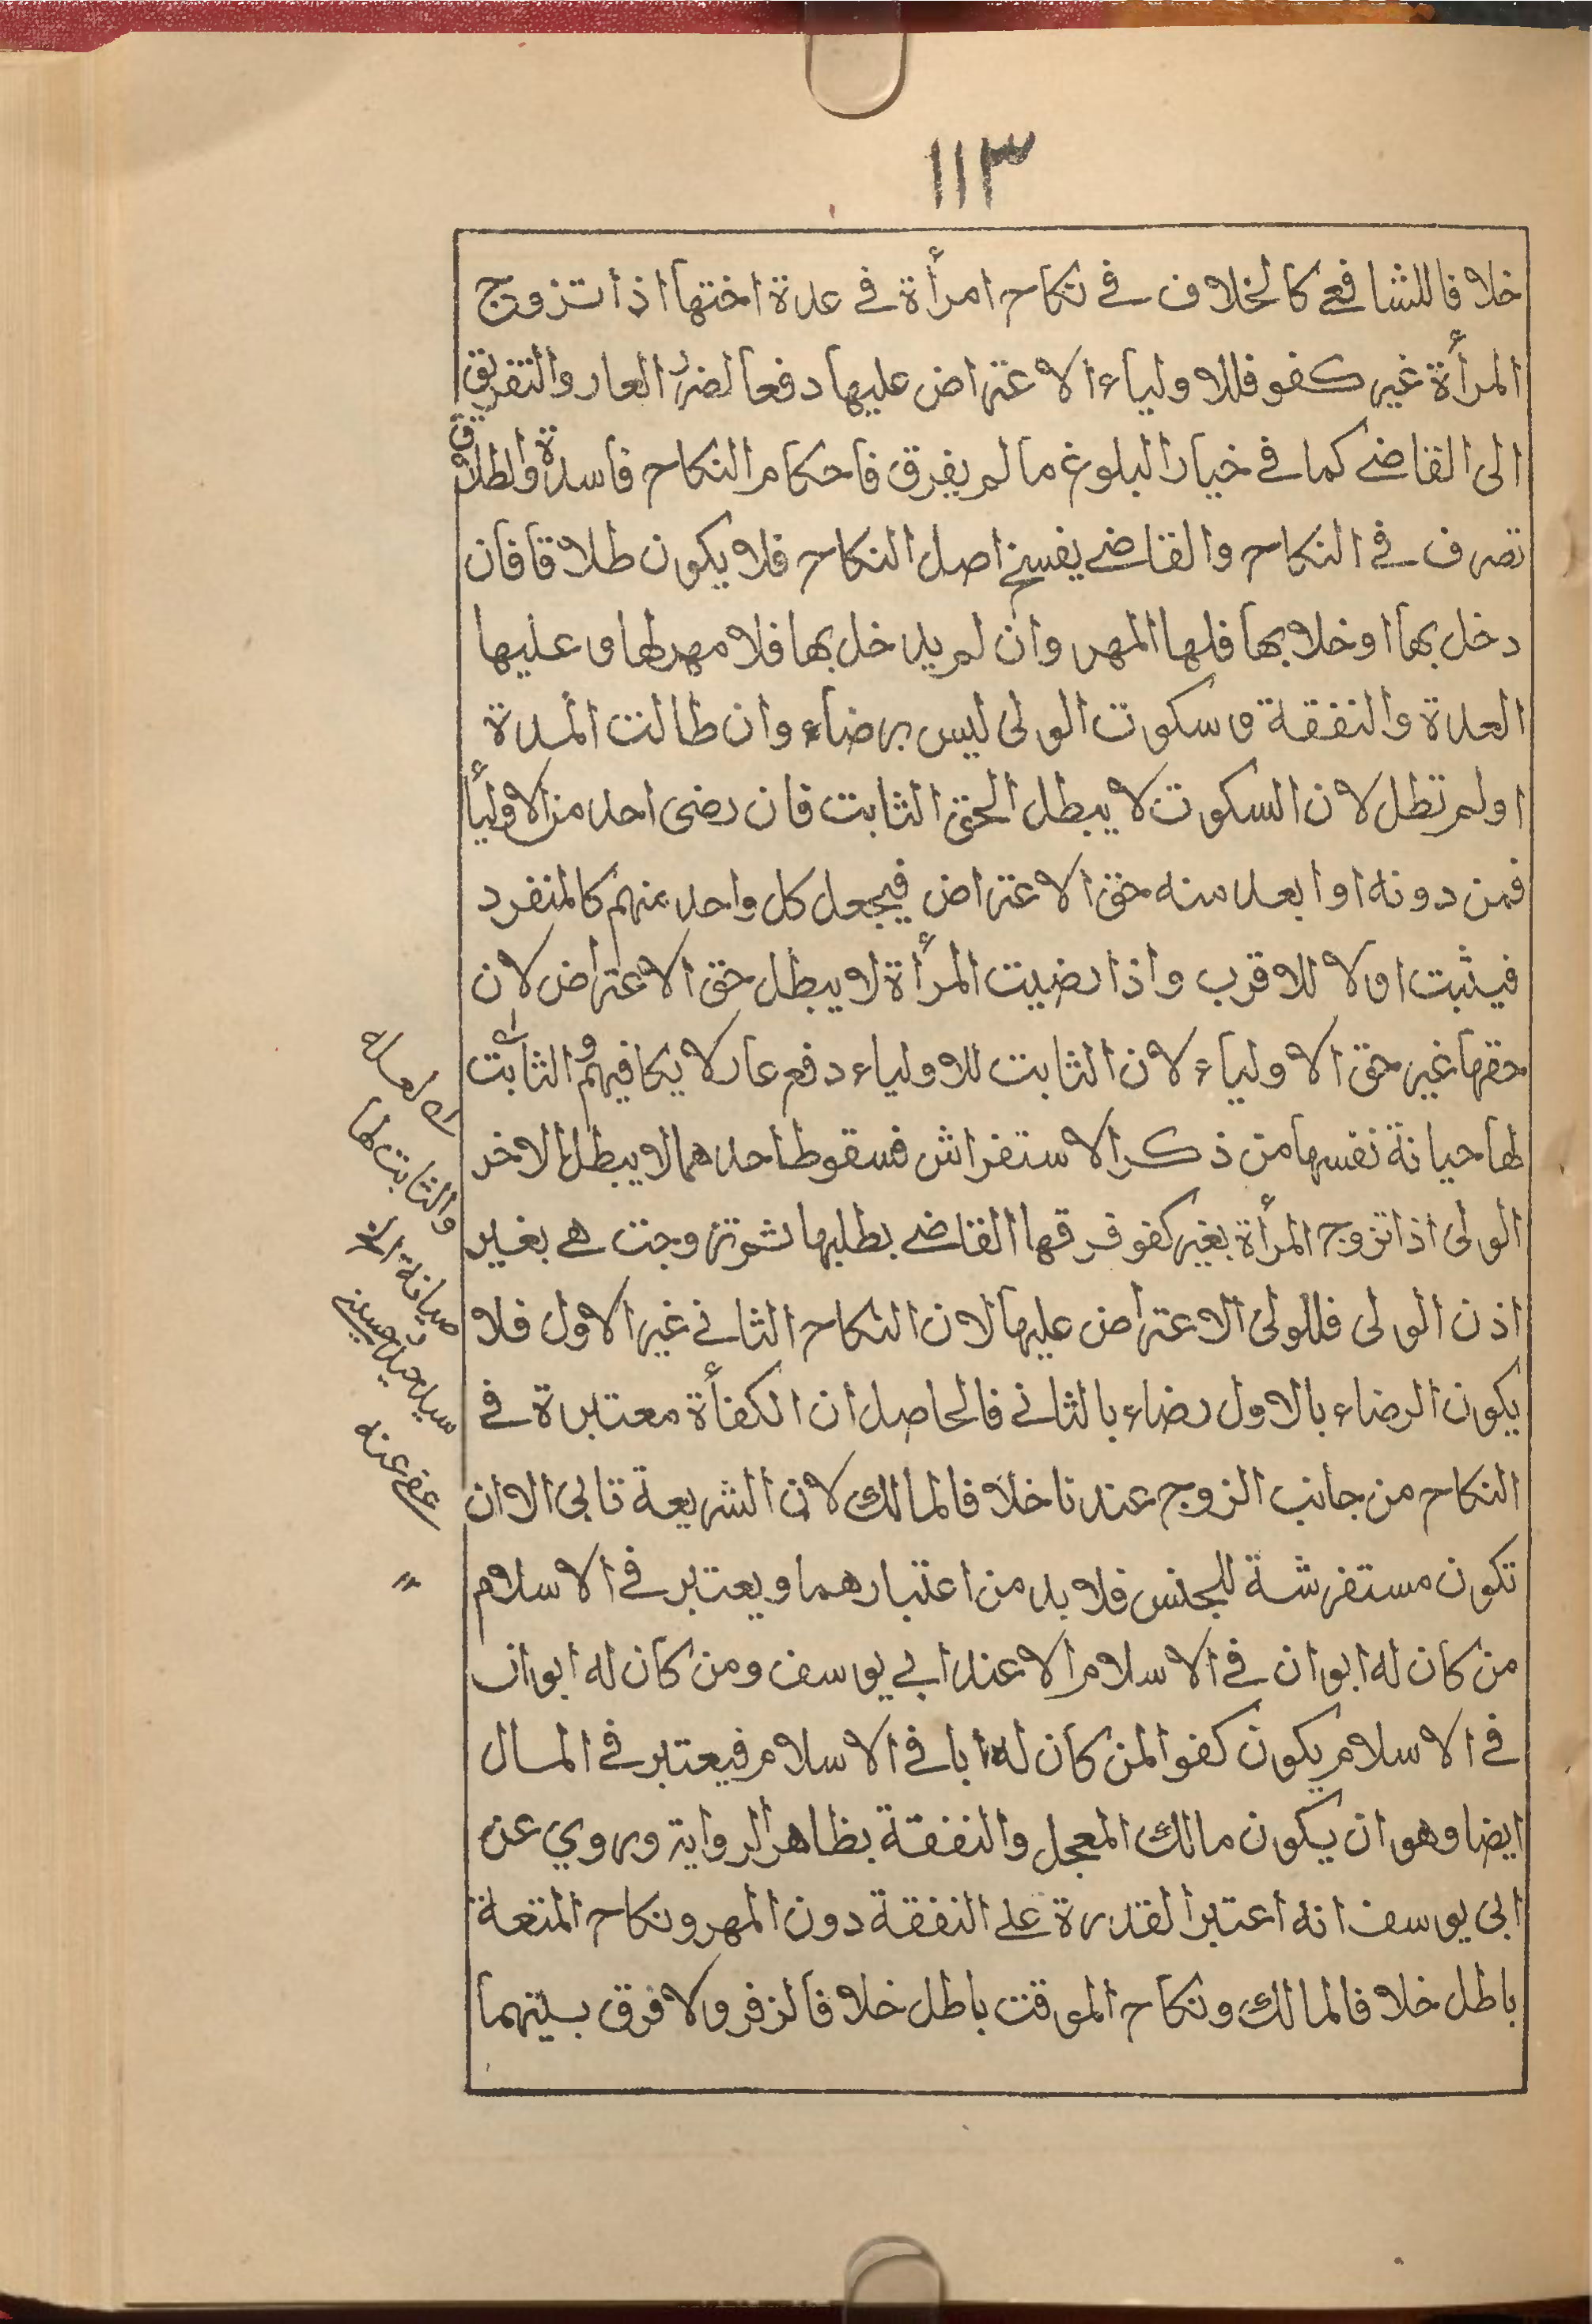 ١١٣
خلافا للشافعي كالخلاف في نكاح امرأة في عدة اختها اذا تزوج
المرأة غير كفو فللاولياء الاعتراض عليها دفعا لضرر العار والتفريق
الى القاضي كما في خيار البلوغ مالم يفرق فاحكام النكاح فاسدة والطلاق
تصرف في النكاح والقاضي يفسخ اصل النكاح فلا يكون طلاقا فان
دخل بها او خلا بها فلها المهر وان لم يدخل بها فلا مهر لها و عليها
العدة والنفقة و سكوت الولى ليس برضاء وان طالت المدة
اولم تطل لان السكوت لا يبطل الحق الثابت فان رضى احد من الاوليأ
فمن دونه او ابعد منه حق الاعتراض فيجعل كل واحد منهم كالمنفرد
فيثبت اولا للاقرب واذا رضيت المرأة لا يبطل حق الاعتراض لان
حقها غير حق الاولياء لان الثابت للاولياء دفع عار لا يكافيهم و الثابت
لها حيانة نفسها من ذكر الاستفراش فسقوط احدهما لا يبطل الاخر
الولى اذا تزوج المرأة بغير كفو فرقها القاضي بطلبها ثم تزوجت هي بغير
اذن الولى فللولى الاعتراض عليها لان النكاح الثاني غير الاول فلا
يكون الرضاء بالاول رضاء بالثاني فالحاصل ان الكفأة معتبرة في
النكاح من جانب الزوج عندنا خلافا لمالك لان الشريعة تابى الا ان
تكون مستفرشة للجنس فلا بد من اعتبارهما ويعتبر في الاسلام
من كان له ابوان في الاسلام الا عند ابي يوسف ومن كان له ابوان
في الاسلام يكون كفوا لمن كان له ابا في الاسلام فيعتبر في المال
ايضا وهو ان يكون مالك المعجل والنفقة بظاهر الرواية وروي عن
ابى يوسف انه اعتبر القدرة على النفقة دون المهر ونكاح المتعة
باطل خلافا لمالك ونكاح الموقت باطل خلافا لزفر ولا فرق بينهما
والثابت لها
صيانة الخ
عفي عنه